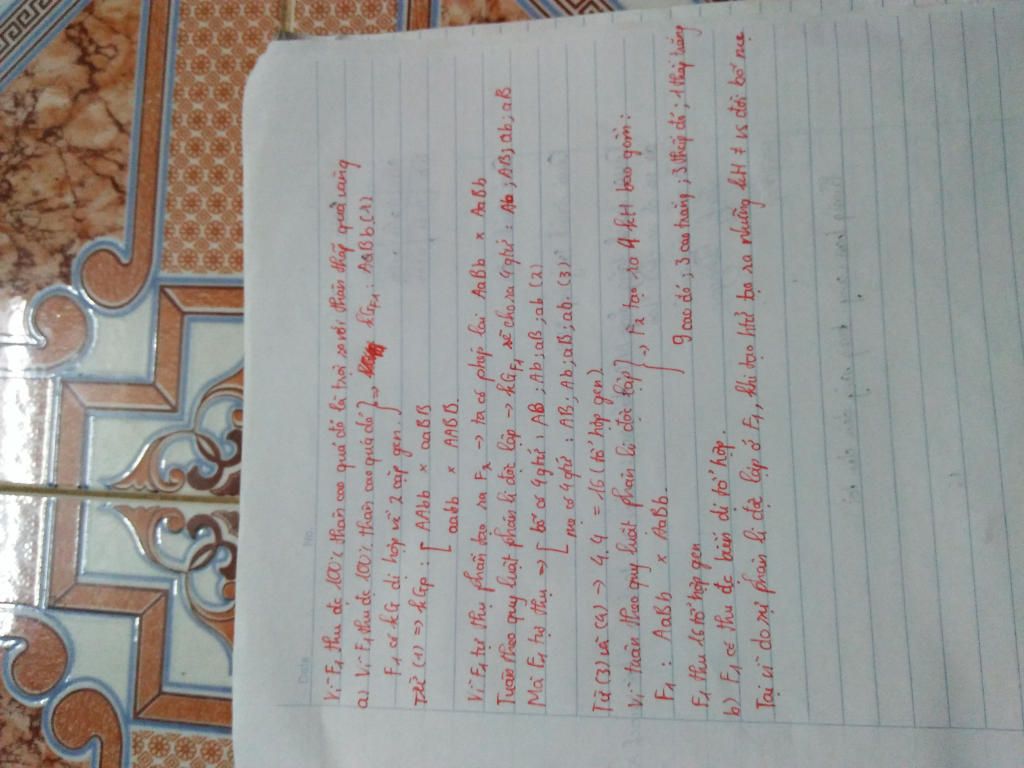 Date
No.
Vì F1 thu đc 100% thân cao quả đỏ là trội so với thân thấp quả vàng
a) Vì F1 thu đc 100% thân cao quả đỏ } => KG F1: AaBb (1)
F1 có KG dị hợp về 2 cặp gen. }
Từ (1) => KG P: [ AAbb x aaBB
[ aabb x AABB.
Vì F1 tự thụ phấn tạo ra F2 -> ta có phép lai AaBb x AaBb
Tuân theo quy luật phân li độc lập -> KG F1 sẽ cho ra 4 gtử: Ab; AB; ab; aB
Mà F1 tự thụ => [ bố có 4 gtử: AB; Ab; aB; ab (2)
[ mẹ có 4 gtử: AB; Ab; aB; ab. (3)
-> 4.4 = 16 (tổ hợp gen)
Vì tuân theo quy luật phân li độc lập } -> F2 tạo ra 4 KH bao gồm:
F1: AaBb x AaBb. 9 cao đỏ; 3 cao trắng; 3 thấp đỏ; 1 thấp trắng
F1 thu 16 tổ hợp gen
b) F1 có thu đc biến dị tổ hợp.
Tại vì do sự phân li độc lập ở F1, khi tạo htử tạo ra những KH ≠ vs đời bố mẹ